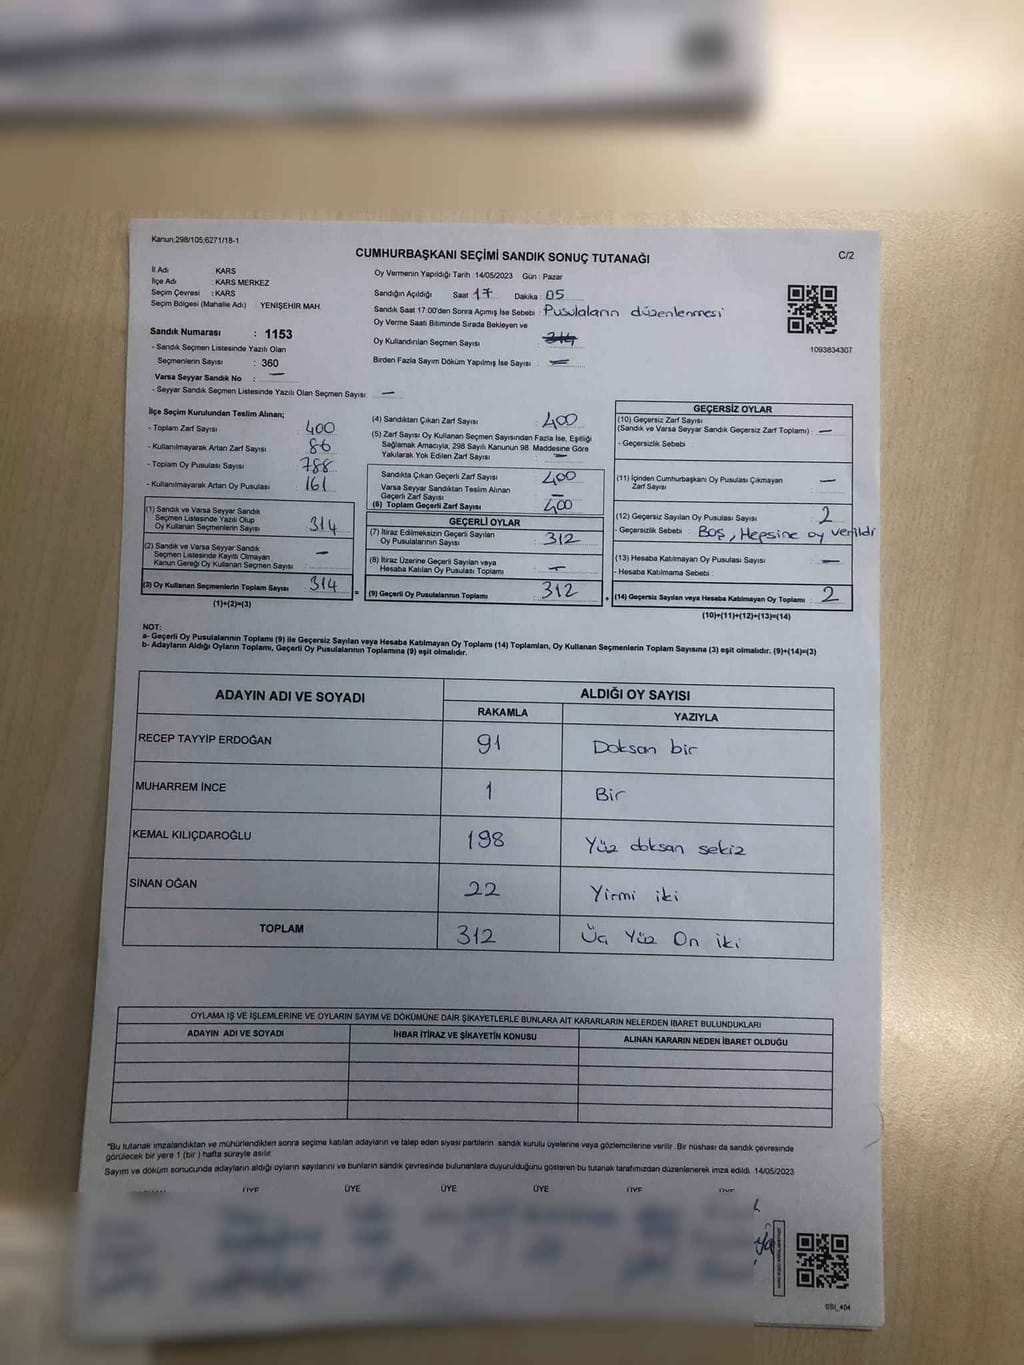 Kanun,298/105;6271/18-1
CUMHURBAŞKANI SEÇİMİ SANDIK SONUÇ TUTANAĞI
C/2
İl Adı : KARS
İlçe Adı : KARS MERKEZ
Seçim Çevresi : KARS
Seçim Bölgesi (Mahalle Adı) : YENİŞEHİR MAH.
Sandık Numarası : 1153
- Sandık Seçmen Listesinde Yazılı Olan
Seçmenlerin Sayısı : 360
Varsa Seyyar Sandık No : —
- Seyyar Sandık Seçmen Listesinde Yazılı Olan Seçmen Sayısı: —
Oy Vermenin Yapıldığı Tarih : 14/05/2023 Gün : Pazar
Sandığın Açıldığı Saat 17 Dakika : 05
Sandık Saat 17:00'den Sonra Açımış İse Sebebi : Pusulaların düzenlenmesi
Oy Verme Saati Bitiminde Sırada Bekleyen ve
Oy Kullandırılan Seçmen Sayısı : 314
Birden Fazla Sayım Döküm Yapılmış İse Sayısı : —
1093834307
İlçe Seçim Kurulundan Teslim Alınan;
- Toplam Zarf Sayısı : 400
- Kullanılmayarak Artan Zarf Sayısı : 86
- Toplam Oy Pusulası Sayısı : 788
- Kullanılmayarak Artan Oy Pusulası : 161
(1) Sandık ve Varsa Seyyar Sandık
Seçmen Listesinde Yazılı Olup
Oy Kullanan Seçmenlerin Sayısı : 314
(2) Sandık ve Varsa Seyyar Sandık
Seçmen Listesinde Kayıtlı Olmayan
Kanun Gereği Oy Kullanan Seçmen Sayısı : —
(3) Oy Kullanan Seçmenlerin Toplam Sayısı : 314 =
(1)+(2)=(3)
(4) Sandıktan Çıkan Zarf Sayısı : 400
(5) Zarf Sayısı Oy Kullanan Seçmen Sayısından Fazla İse, Eşitliği
Sağlamak Amacıyla, 298 Sayılı Kanunun 98. Maddesine Göre
Yakılarak Yok Edilen Zarf Sayısı : —
Sandıkta Çıkan Geçerli Zarf Sayısı : 400
Varsa Seyyar Sandıktan Teslim Alınan
Geçerli Zarf Sayısı : —
(6) Toplam Geçerli Zarf Sayısı : 400
GEÇERLİ OYLAR
(7) İtiraz Edilmeksizin Geçerli Sayılan
Oy Pusulalarının Sayısı : 312
(8) İtiraz Üzerine Geçerli Sayılan veya
Hesaba Katılan Oy Pusulası Toplamı : —
(9) Geçerli Oy Pusulalarının Toplamı : 312 +
GEÇERSİZ OYLAR
(10) Geçersiz Zarf Sayısı
(Sandık ve Varsa Seyyar Sandık Geçersiz Zarf Toplamı) : —
- Geçersizlik Sebebi :
(11) İçinden Cumhurbaşkanı Oy Pusulası Çıkmayan
Zarf Sayısı : —
(12) Geçersiz Sayılan Oy Pusulası Sayısı : 2
- Geçersizlik Sebebi : Boş, Hepsine oy verildi
(13) Hesaba Katılmayan Oy Pusulası Sayısı : —
- Hesaba Katılmama Sebebi :
(14) Geçersiz Sayılan veya Hesaba Katılmayan Oy Toplamı : 2
(10)+(11)+(12)+(13)=(14)
NOT:
a- Geçerli Oy Pusulalarının Toplamı (9) ile Geçersiz Sayılan veya Hesaba Katılmayan Oy Toplamı (14) Toplamları, Oy Kullanan Seçmenlerin Toplam Sayısına (3) eşit olmalıdır. (9)+(14)=(3)
b- Adayların Aldığı Oyların Toplamı, Geçerli Oy Pusulalarının Toplamına (9) eşit olmalıdır.
ADAYIN ADI VE SOYADI ALDIĞI OY SAYISI
RAKAMLA YAZIYLA
RECEP TAYYİP ERDOĞAN 91 Doksan bir
MUHARREM İNCE 1 Bir
KEMAL KILIÇDAROĞLU 198 Yüz doksan sekiz
SİNAN OĞAN 22 Yirmi iki
TOPLAM 312 Üç Yüz On iki
OYLAMA İŞ VE İŞLEMLERİNE VE OYLARIN SAYIM VE DÖKÜMÜNE DAİR ŞİKAYETLERLE BUNLARA AİT KARARLARIN NELERDEN İBARET BULUNDUKLARI
ADAYIN ADI VE SOYADI İHBAR İTİRAZ VE ŞİKAYETİN KONUSU ALINAN KARARIN NEDEN İBARET OLDUĞU
*Bu tutanak imzalandıktan ve mühürlendikten sonra seçime katılan adayların ve talep eden siyasi partilerin sandık kurulu üyelerine veya gözlemcilerine verilir. Bir nüshası da sandık çevresinde
görülecek bir yere 1 (bir) hafta süreyle asılır.
Sayım ve döküm sonucunda adayların aldığı oyların sayılarını ve bunların sandık çevresinde bulunanlara duyurulduğunu gösteren bu tutanak tarafımızdan düzenlenerek imza edildi. 14/05/2023
ÜYE ÜYE ÜYE ÜYE ÜYE ÜYE
SSI_404